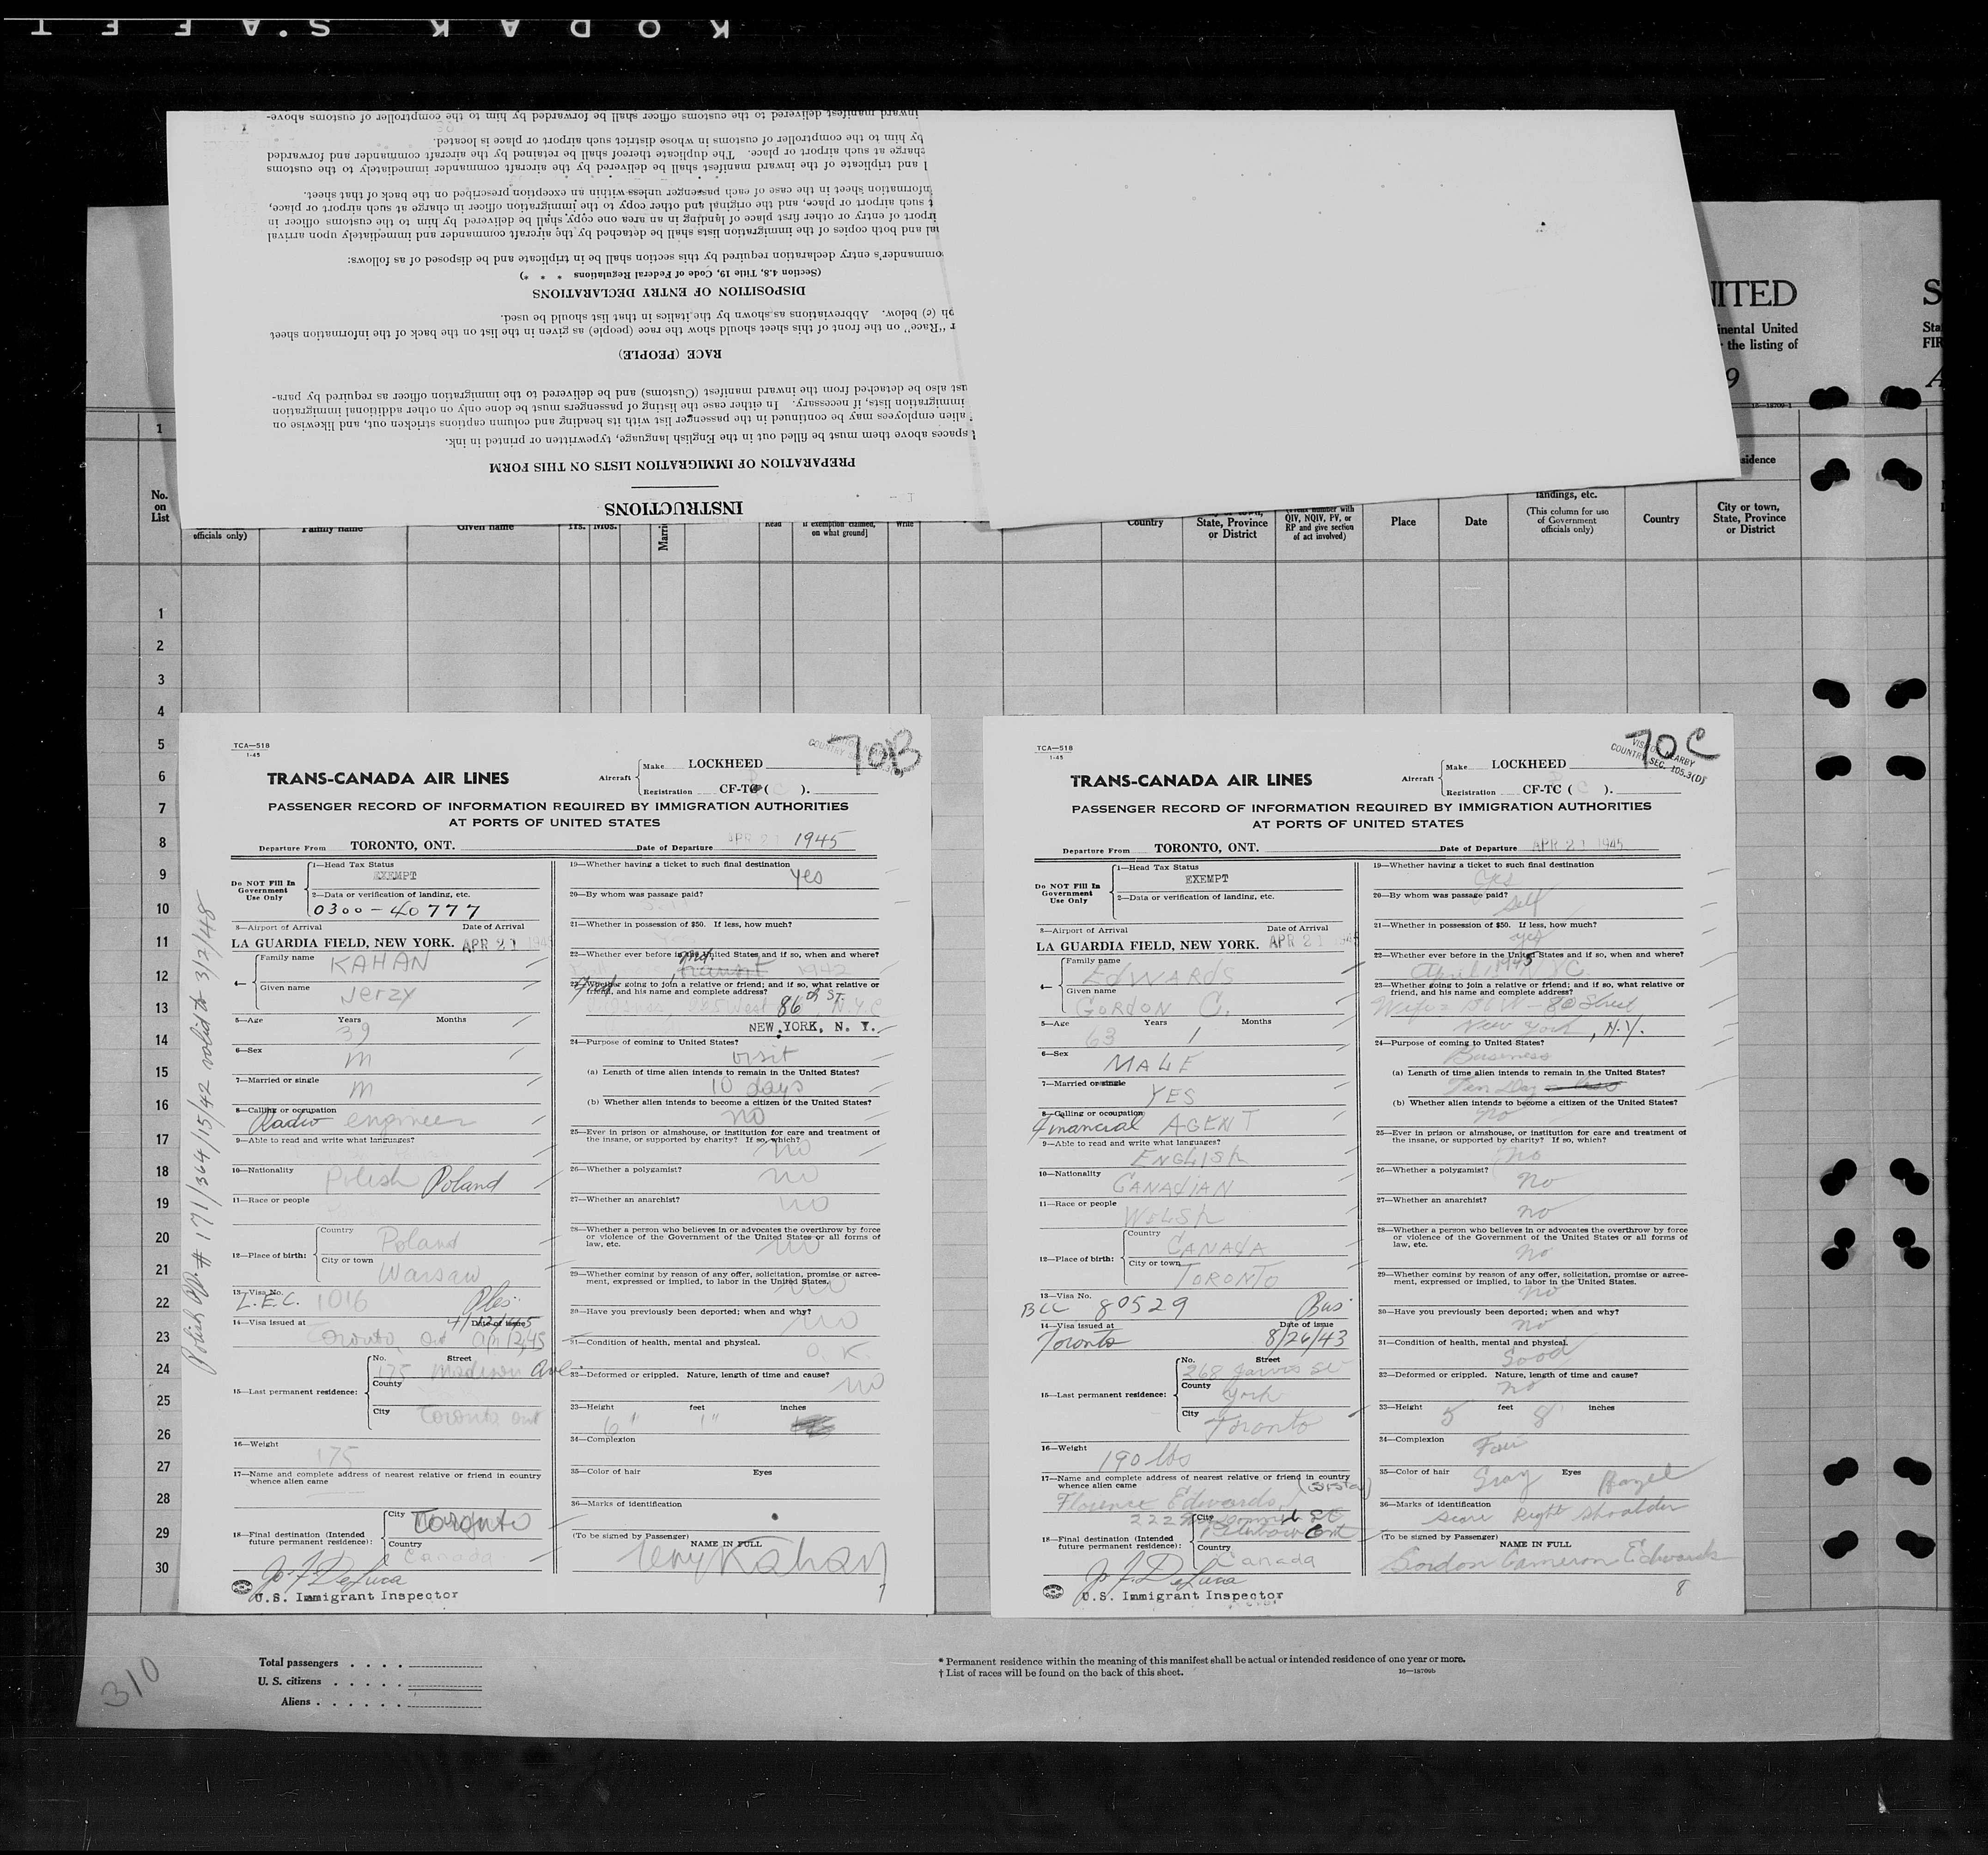 KODAK S.AFET
inward manifest delivered to the customs officer shall be forwarded by him to the comptroller of customs above-
by him to the comptroller of customs in whose district such airport or place is located.
charge at such airport or place. The duplicate thereof shall be retained by the aircraft commander and forwarded
l and triplicate of the inward manifest shall be delivered by the aircraft commander immediately to the customs
information sheet in the case of each passenger unless within an exception prescribed on the back of that sheet.
t such airport or place, and the original and other copy to the immigration officer in charge at such airport or place,
irport of entry or other first place of landing in an area one copy shall be delivered by him to the customs officer in
al and both copies of the immigration lists shall be detached by the aircraft commander and immediately upon arrival
ommander's entry declaration required by this section shall be in triplicate and be disposed of as follows:
(Section 4.8, Title 19, Code of Federal Regulations * * *)
DISPOSITION OF ENTRY DECLARATIONS
ph (c) below. Abbreviations as shown by the italics in that list should be used.
r "Race" on the front of this sheet should show the race (people) as given in the list on the back of the information sheet
RACE (PEOPLE)
ust also be detached from the inward manifest (Customs) and be delivered to the immigration officer as required by para-
immigration lists, if necessary. In either case the listing of passengers must be done only on other additional immigration
alien employees may be continued in the passenger list with its heading and column captions stricken out, and likewise on
l spaces above them must be filled out in the English language, typewritten or printed in ink.
PREPARATION OF IMMIGRATION LISTS ON THIS FORM
INSTRUCTIONS
NITED S
inental United Sta
the listing of FIR
9 A
16—18709-1
1
sidence
No. on List
officials only)
Family name
Given name
Yrs. Mos.
Marri
Read
if exemption claimed, on what ground]
Write
Country
State, Province or District
QIV, NQIV, PV, or RP and give section of act involved)
Place
Date
landings, etc. (This column for use of Government officials only)
Country
City or town, State, Province or District
1
2
3
4
5
6
7
8
9
10
11
12
13
14
15
16
17
18
19
20
21
22
23
24
25
26
27
28
29
30
TCA—518
1-45
70B
TRANS-CANADA AIR LINES
Aircraft Make LOCKHEED
Registration CF-TC ( C ).
PASSENGER RECORD OF INFORMATION REQUIRED BY IMMIGRATION AUTHORITIES
AT PORTS OF UNITED STATES
Departure From TORONTO, ONT. Date of Departure APR 21 1945
Do NOT Fill In Government Use Only
1—Head Tax Status
EXEMPT
2—Data or verification of landing, etc.
0300-40777
3—Airport of Arrival Date of Arrival
LA GUARDIA FIELD, NEW YORK. APR 21 1945
4— Family name KAHAN
Given name Jerzy
5—Age Years Months
39
6—Sex M
7—Married or single M
8—Calling or occupation
Radio engineer
9—Able to read and write what languages?
10—Nationality Polish Poland
11—Race or people
12—Place of birth: Country Poland
City or town Warsaw
13—Visa No.
L.E.C. 1016 Ples.
14—Visa issued at Date of issue
Toronto, Ont Apr 12, 45
15—Last permanent residence: No. Street
175 Madison Ave
County
City Toronto Ont
16—Weight 175
17—Name and complete address of nearest relative or friend in country whence alien came
18—Final destination (Intended future permanent residence): City Toronto
Country Canada
J. J. DeLuca
U.S. Immigrant Inspector
Polish PP. # 171/364/15/42 valid to 3/2/48
19—Whether having a ticket to such final destination
yes
20—By whom was passage paid?
21—Whether in possession of $50. If less, how much?
22—Whether ever before in the United States and if so, when and where?
1942
23—Whether going to join a relative or friend; and if so, what relative or friend, and his name and complete address?
West 86th ST. N Y C
NEW YORK, N. Y.
24—Purpose of coming to United States?
visit
(a) Length of time alien intends to remain in the United States?
10 days
(b) Whether alien intends to become a citizen of the United States?
no
25—Ever in prison or almshouse, or institution for care and treatment of the insane, or supported by charity? If so, which?
no
26—Whether a polygamist?
no
27—Whether an anarchist?
no
28—Whether a person who believes in or advocates the overthrow by force or violence of the Government of the United States or all forms of law, etc.
no
29—Whether coming by reason of any offer, solicitation, promise or agreement, expressed or implied, to labor in the United States.
no
30—Have you previously been deported; when and why?
no
31—Condition of health, mental and physical.
O. K.
32—Deformed or crippled. Nature, length of time and cause?
no
33—Height feet inches
6" 1"
34—Complexion
35—Color of hair Eyes
36—Marks of identification
(To be signed by Passenger) NAME IN FULL
Jerzy Kahan
7
TCA—518
1-45
70C
VISITOR NEARBY
COUNTRY SEC. 105.3(D)
TRANS-CANADA AIR LINES
Aircraft Make LOCKHEED
Registration CF-TC ( C ).
PASSENGER RECORD OF INFORMATION REQUIRED BY IMMIGRATION AUTHORITIES
AT PORTS OF UNITED STATES
Departure From TORONTO, ONT. Date of Departure APR 21 1945
Do NOT Fill In Government Use Only
1—Head Tax Status
EXEMPT
2—Data or verification of landing, etc.
3—Airport of Arrival Date of Arrival
LA GUARDIA FIELD, NEW YORK. APR 21 1945
4— Family name EDWARDS
Given name GORDON C.
5—Age Years Months
63 1
6—Sex MALE
7—Married or single YES
8—Calling or occupation
Financial AGENT
9—Able to read and write what languages?
ENGLISH
10—Nationality CANADIAN
11—Race or people WELSH
12—Place of birth: Country CANADA
City or town TORONTO
13—Visa No.
BCC 80529 Bus
14—Visa issued at Date of issue
Toronto 8/26/43
15—Last permanent residence: No. Street
268 Jarvis St
County York
City Toronto
16—Weight 190 lbs
17—Name and complete address of nearest relative or friend in country whence alien came (Sister)
Florence Edwards,
222
18—Final destination (Intended future permanent residence): City Ont
Country Canada
J. J. DeLuca
U.S. Immigrant Inspector
19—Whether having a ticket to such final destination
yes
20—By whom was passage paid?
Self
21—Whether in possession of $50. If less, how much?
yes
22—Whether ever before in the United States and if so, when and where?
April 1945 N.Y.C.
23—Whether going to join a relative or friend; and if so, what relative or friend, and his name and complete address?
Wife - W - 80 Street
New York, N.Y.
24—Purpose of coming to United States?
Business
(a) Length of time alien intends to remain in the United States?
Ten Day
(b) Whether alien intends to become a citizen of the United States?
no
25—Ever in prison or almshouse, or institution for care and treatment of the insane, or supported by charity? If so, which?
no
26—Whether a polygamist?
no
27—Whether an anarchist?
no
28—Whether a person who believes in or advocates the overthrow by force or violence of the Government of the United States or all forms of law, etc.
no
29—Whether coming by reason of any offer, solicitation, promise or agreement, expressed or implied, to labor in the United States.
no
30—Have you previously been deported; when and why?
no
31—Condition of health, mental and physical.
Good
32—Deformed or crippled. Nature, length of time and cause?
no
33—Height feet inches
5 8
34—Complexion Fair
35—Color of hair Gray Eyes Hazel
36—Marks of identification
Scar Right Shoulder
(To be signed by Passenger) NAME IN FULL
Gordon Cameron Edwards
8
310
Total passengers . . . .
U. S. citizens . . . . .
Aliens . . . . . .
* Permanent residence within the meaning of this manifest shall be actual or intended residence of one year or more.
† List of races will be found on the back of this sheet. 16—18709b